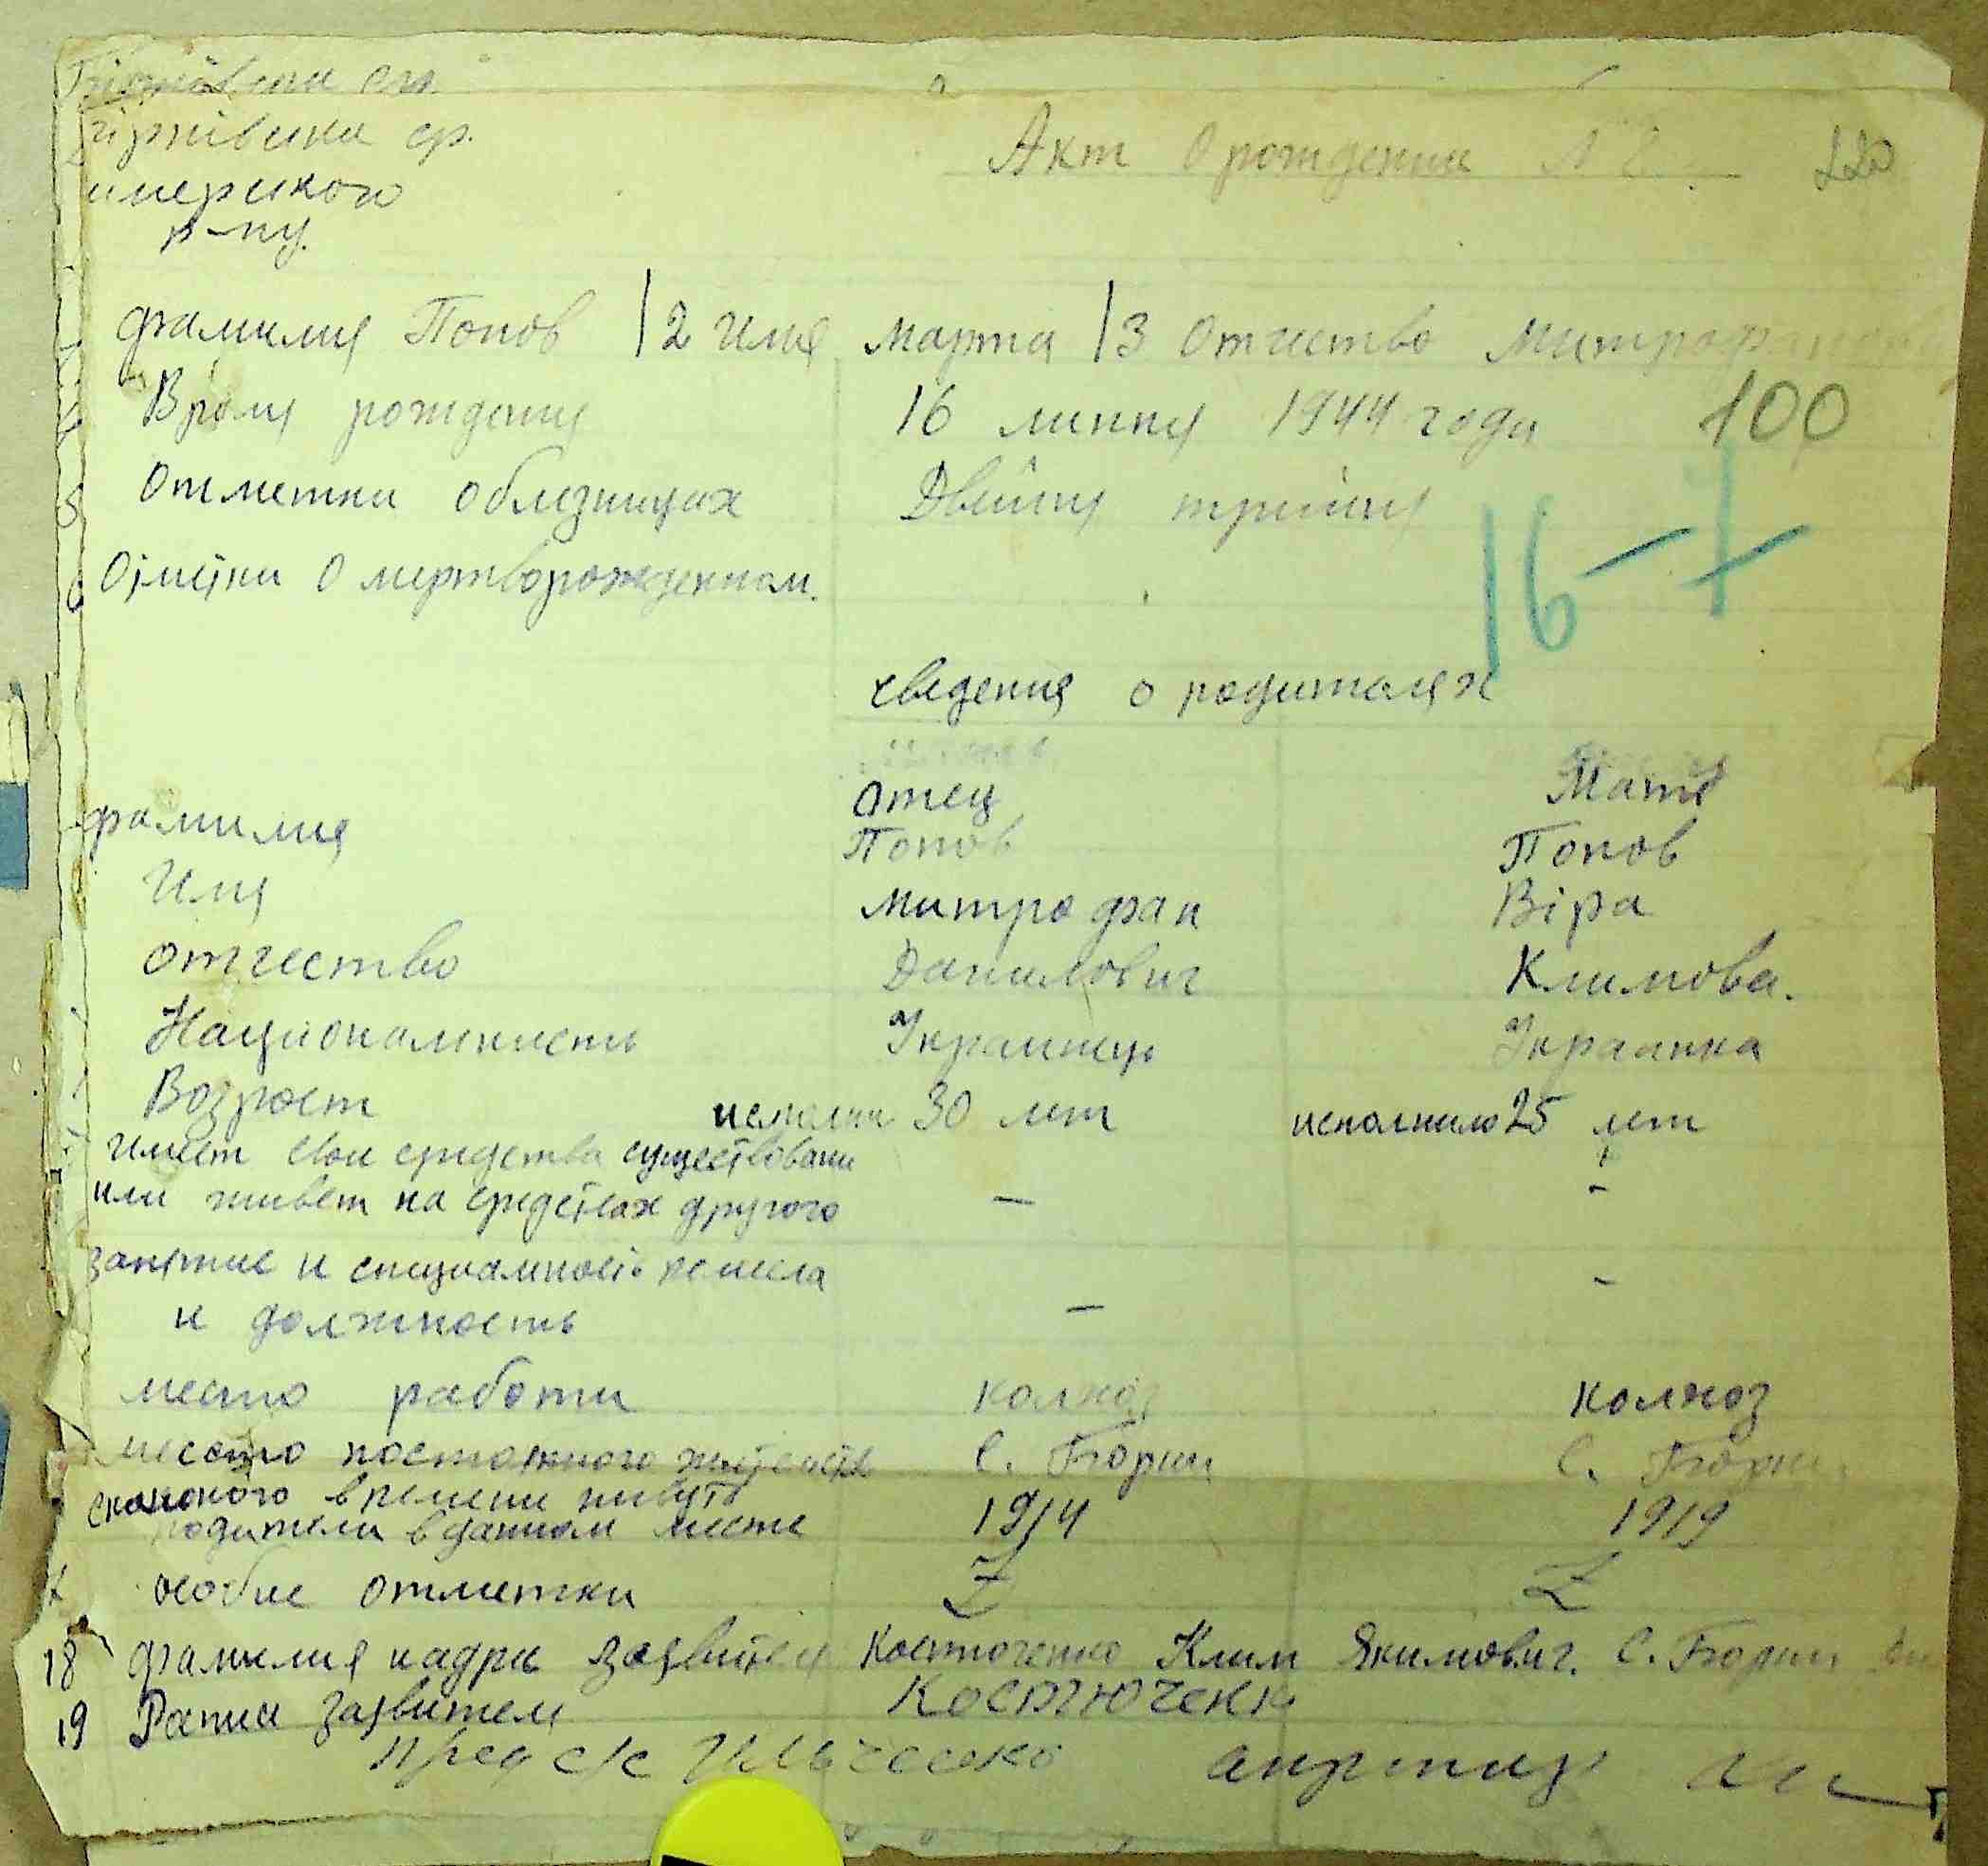 ср.
ср.
р-ну.
Акт О рождении N 8 220
фамилия Попов | 2 Имя Марта | 3 Отчество Митрофановна
Время рождения 16 липня 1944 года 100
5 Отметки облезнецах Двійня трійня
16-7
6 Отметки О мертворожденном.
сведения о родителях
Отец Мать
фамилия Попов Попов
Имя Митрофан Віра
Отчество Данилович Климова.
Национальность Украинець Украинка
Возрост исполн 30 лет исполнило 25 лет
имеет свои средства существовани
или живет на средствах другого — -
занятие и специальность ремесла -
и должность —
место работи колхоз колхоз
место постоянного С. С.
какого времени живуть
родители в данном месте 1914 1919
особие отметки Z Z
18 фамилия Костюченко Клим Якимович. С.
19 заявителя Костюченк
Пред с/с